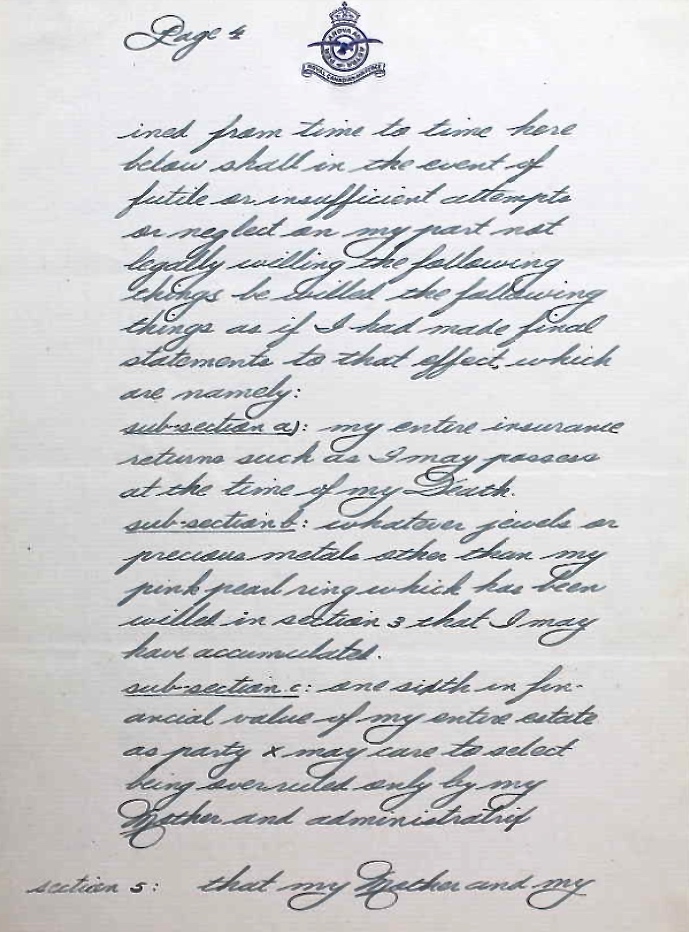 Page 4
PER ARDUA AD ASTRA
ROYAL CANADIAN AIR FORCE
ined from time to time here
below shall in the event of
futile or insufficient attempts
or neglect on my part not
legally willing the following
things be willed the following
things as if I had made final
statements to that effect, which
are namely:
sub-section a): my entire insurance
returns such as I may possess
at the time of my Death.
sub-section b: whatever jewels or
precious metals other than my
pink pearl ring which has been
willed in section 3 that I may
have accumulated.
sub-section c: one sixth in fin-
ancial value of my entire estate
as party x may care to select
being overruled only by my
Mother and administratrix
section 5: that my Mother and my